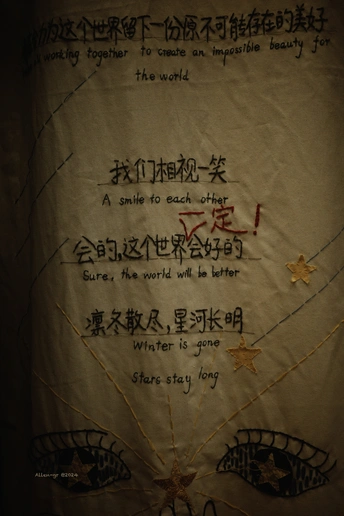 力为这个世界留下一份原不可能存在的美好
working together to create an impossible beauty for
the world
我们相视一笑
A smile to each other
一定!
会的,这个世界会好的
Sure, the world will be better
凛冬散尽,星河长明
Winter is gone
Stars stay long